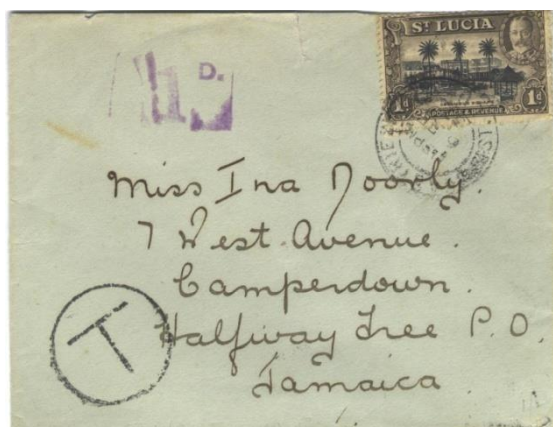 D.
ST LUCIA
1d 1d
POSTAGE & REVENUE
Miss Ina Doorly.
7 West Avenue.
Camperdown.
Halfway Tree P.O.
Jamaica
T